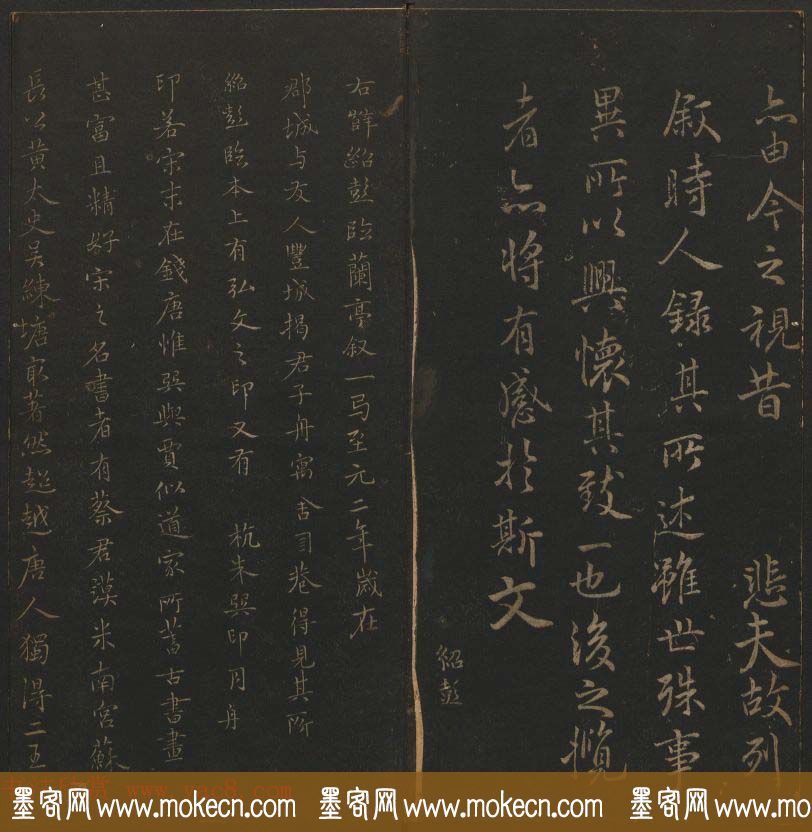 亦由今之視昔 悲夫故列
敘時人錄其所述雖世殊事
異所以興懷其致一也後之攬
者亦將有感於斯文
紹彭
右薛紹彭臨蘭亭叙一馬至元二年歲在
郡城与友人豐城揭君子舟寓舍司巷得見其所
紹彭臨本上有弘文之印又有 杭朱巽印同舟
印若宋末在錢唐惟巽與賈似道家所蓄古書畫
甚富且精好宋之名書者有蔡君謨米南宮蘇
長公黃太史吳練塘最著然超越唐人獨得二王
墨客网 www.mokecn.com 墨客网 www.mokecn.com 墨客网 www.mo
www.yac8.com